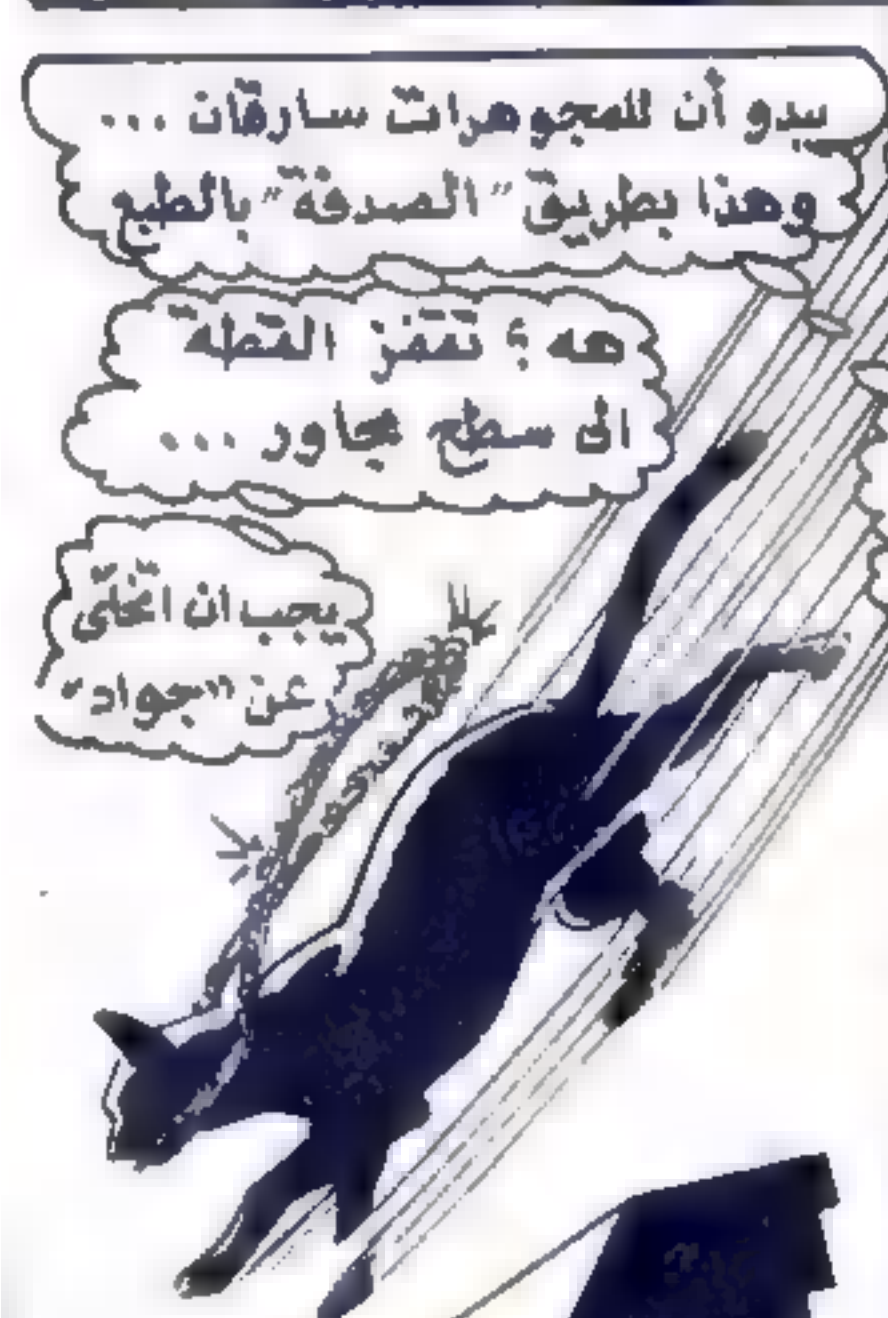 يبدو أن للمجوهرات سارقان ...
وهذا بطريق "الصدفة" بالطبع
هه ؟ تقفز القطة
الى سطح مجاور ...
يجب ان اتخلى
عن "جواد"